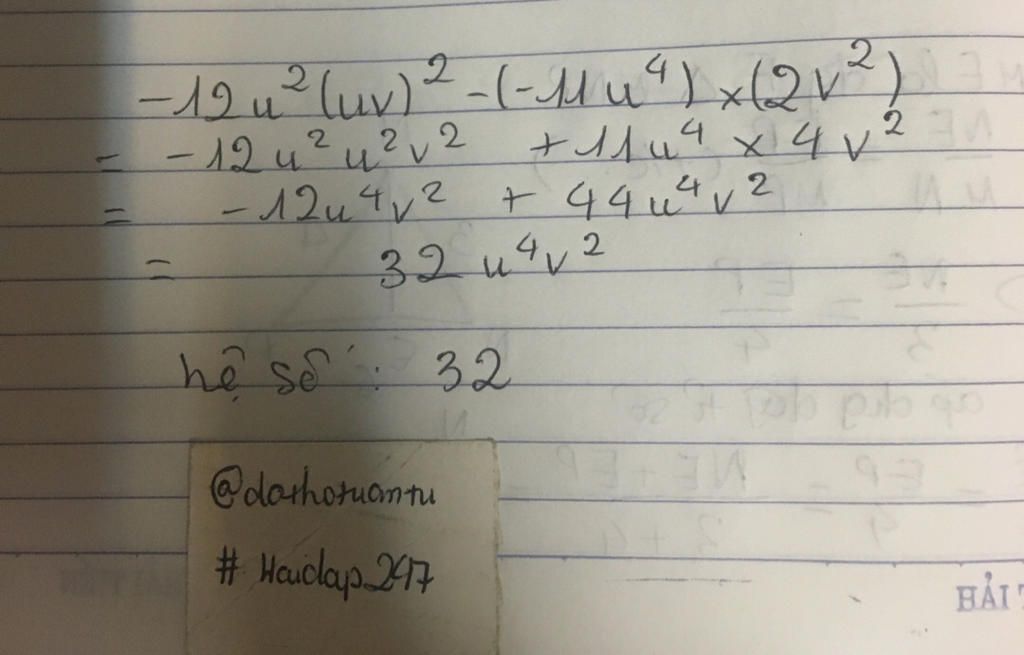 -12u²(uv)² -(-11u⁴) ×(2v²)
= -12u²u²v² +11u⁴ × 4v²
= -12u⁴v² + 44u⁴v²
= 32 u⁴v²
hệ số : 32
@dothotuantu
# Hoidap247
HẢI T